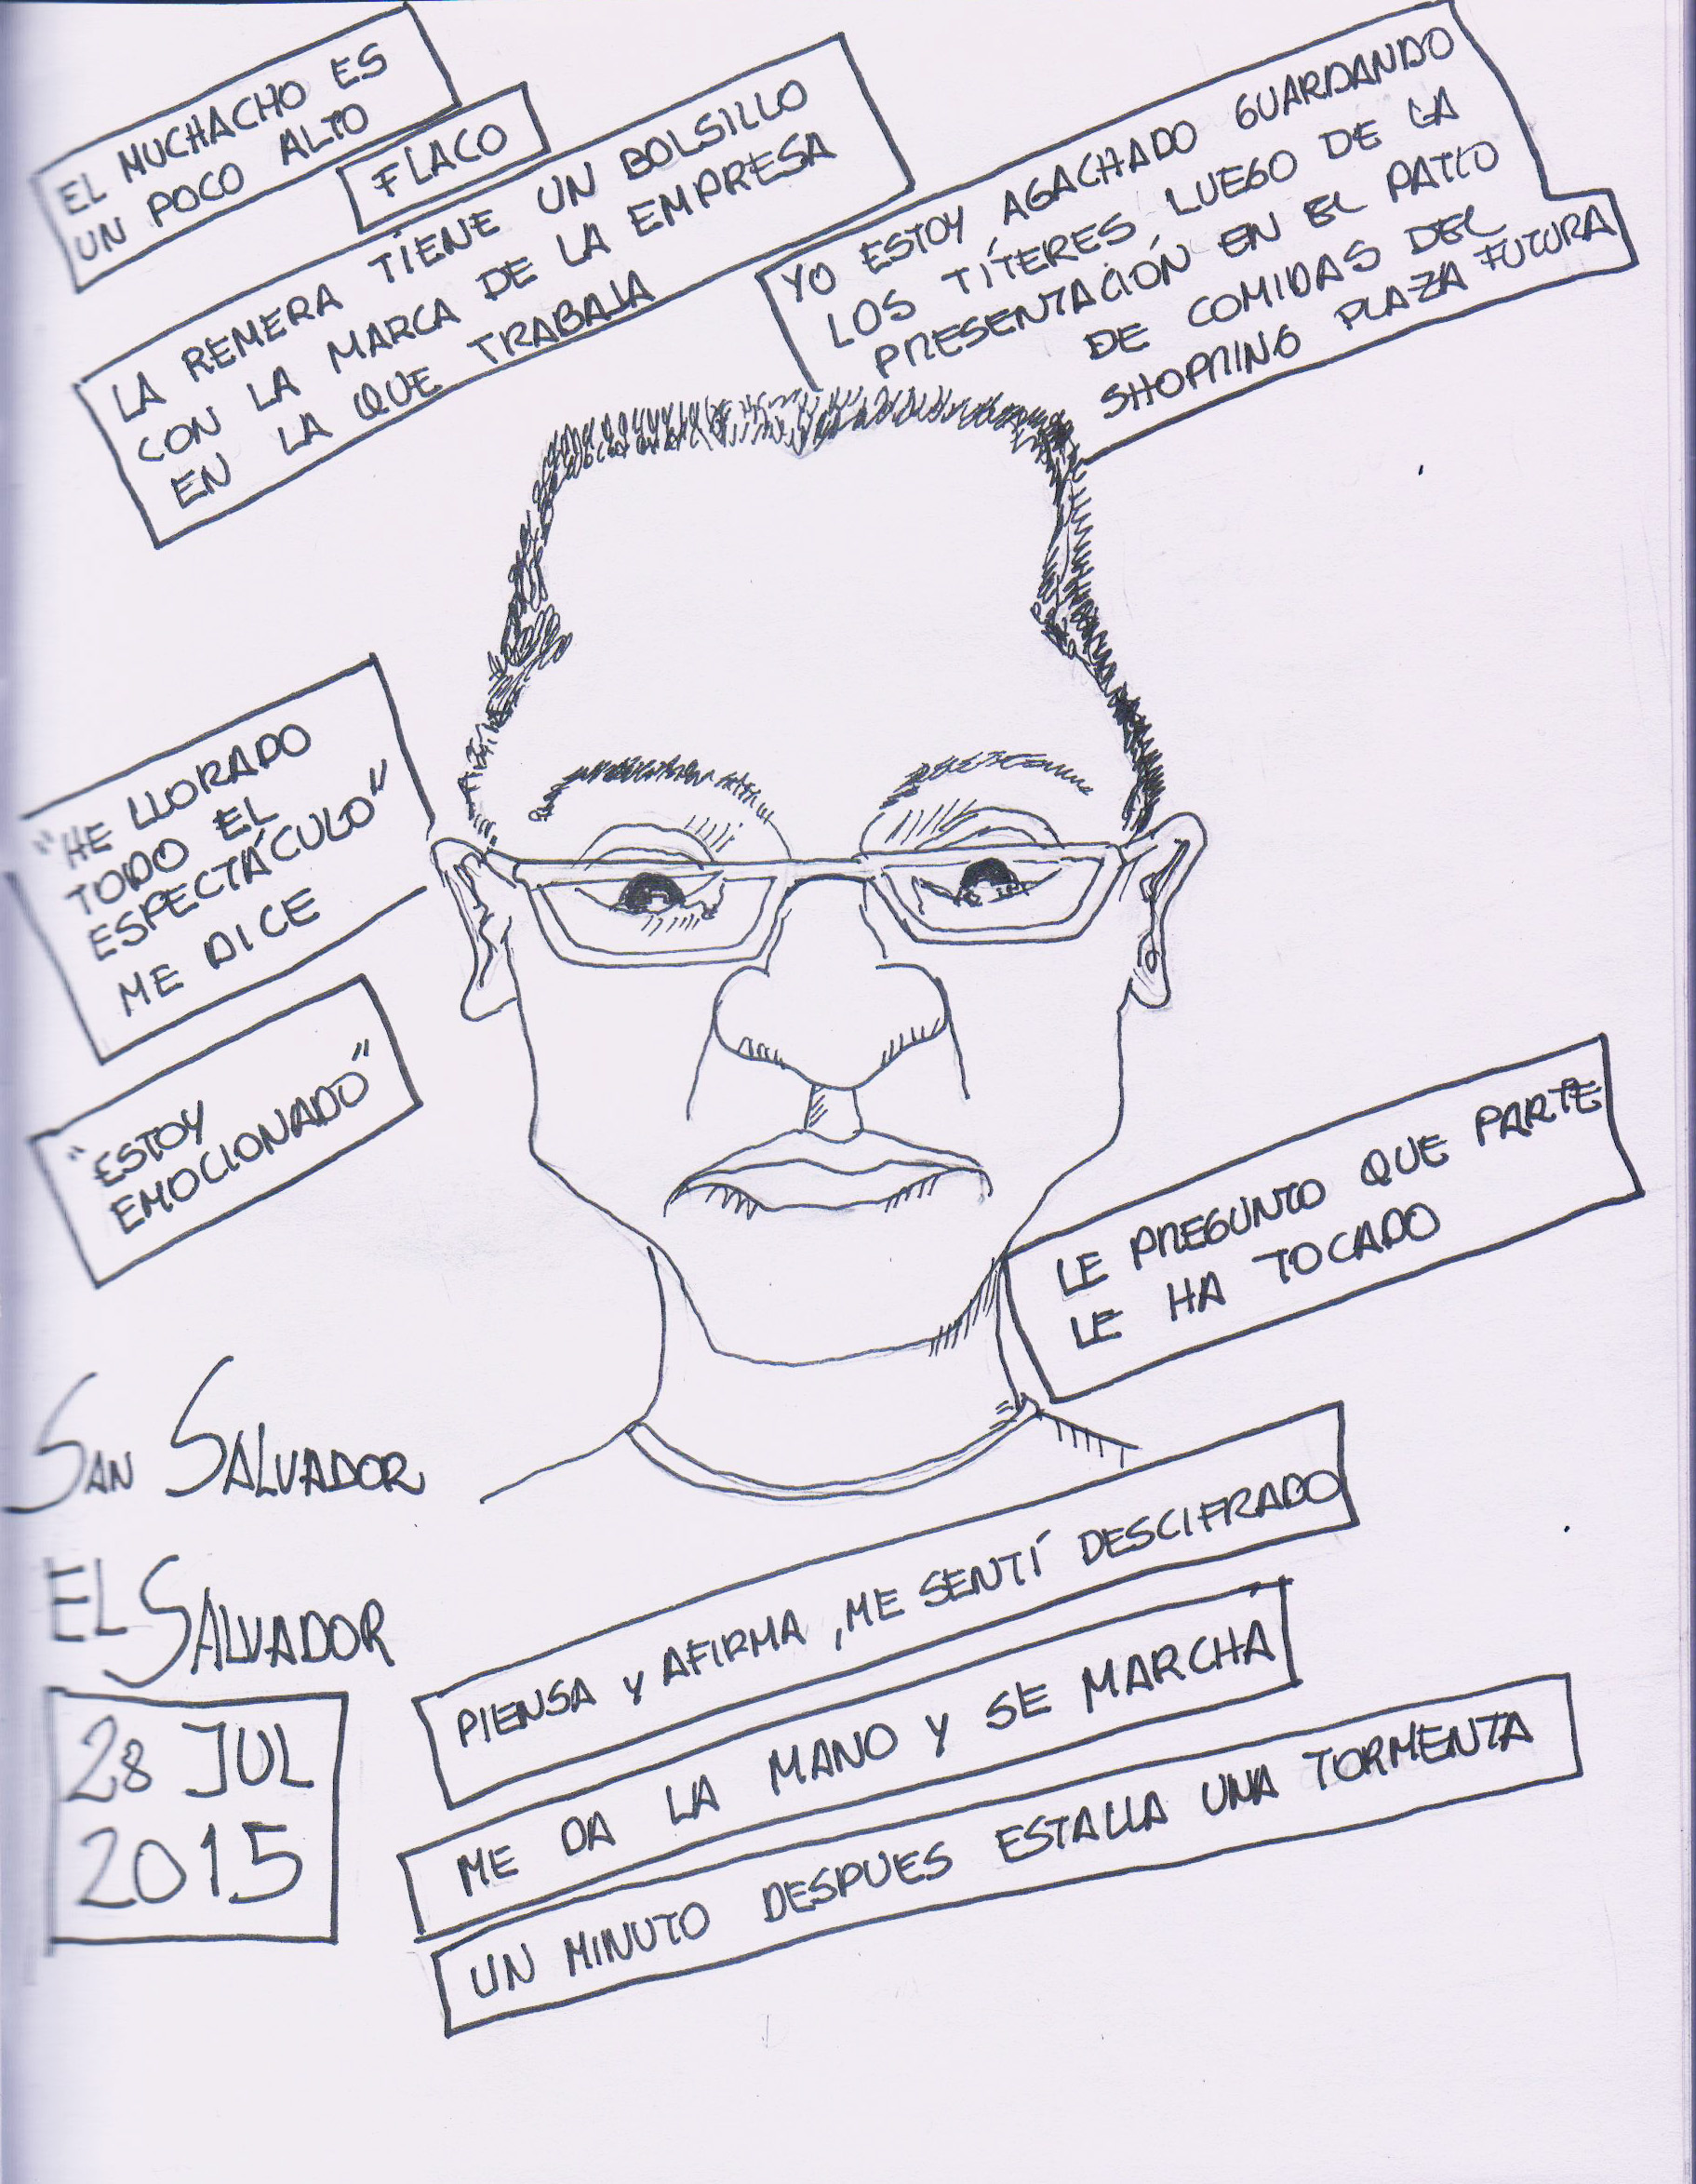 EL MUCHACHO ES
UN POCO ALTO
FLACO
LA REMERA TIENE UN BOLSILLO
CON LA MARCA DE LA EMPRESA
EN LA QUE TRABAJA
YO ESTOY AGACHADO GUARDANDO
LOS TÍTERES LUEGO DE LA
PRESENTACIÓN EN EL PATIO
DE COMIDAS DEL
SHOPPING PLAZA FUTURA
"HE LLORADO
TODO EL
ESPECTÁCULO"
ME DICE
"ESTOY
EMOCIONADO"
LE PREGUNTO QUE PARTE
LE HA TOCADO
SAN SALVADOR
EL SALVADOR
28 JUL
2015
PIENSA Y AFIRMA, ME SENTÍ DESCIFRADO
ME DA LA MANO Y SE MARCHA
UN MINUTO DESPUES ESTALLA UNA TORMENTA